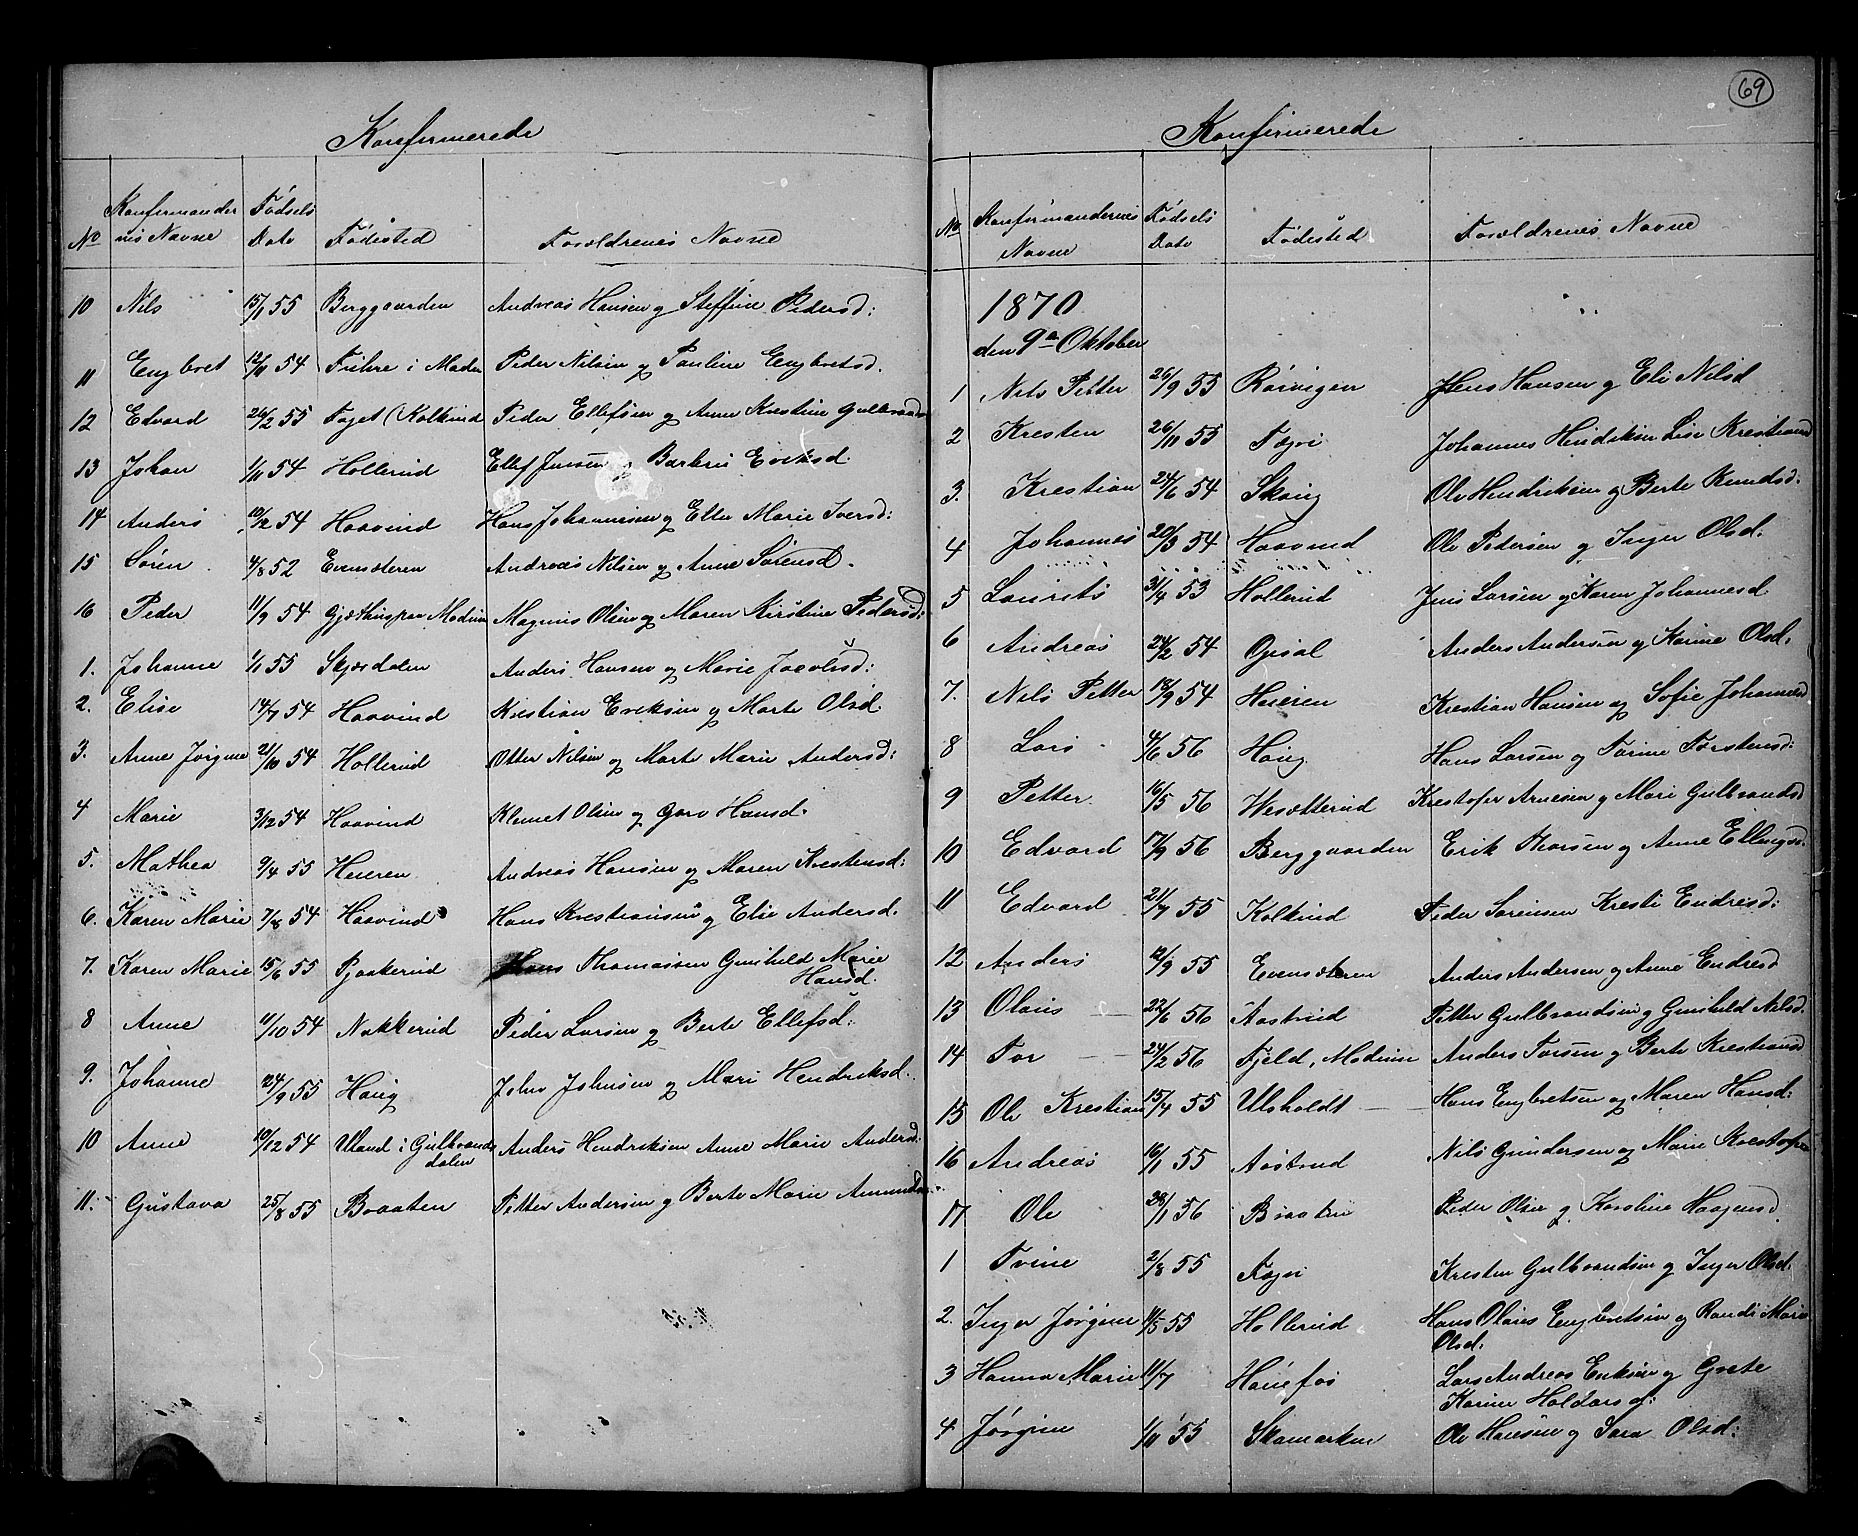 Konfirmerede
No Konfirmander nis Navne Fødsels Dato Fødested Forældrenes Navne
10 Nils 15/1 55 Berggaarden Andreas Hansen og Steffine Pedersd:
11 Engbret 12/11 54 Fuhre i Modum Peder Nilsen og Pauline Engbretsd.
12 Edvard 26/2 55 Faget (Kolkind Peder Ellefsen og Anne Kirstine Gulbrands
13 Johan 1/11 54 Hollerud Ellef Jensen og Barbru Eriksd.
14 Anders 10/12 54 Haavind Hans Johannesen og Ellen Marie Iversd:
15 Søren 4/8 52 Evensæteren Andreas Nilsen og Anne Sørensd.
16 Peder 11/9 54 Modum Magnus Olsen og Maren Kirstine Pedersd:
1. Johanne 1/1 55 Skjærdalen Anders Hansen og Marie Jacobsd:
2. Elise 14/7 54 Haavind Kristian Eriksen og Marte Olsd.
3. Anne Jørgine 21/10 54 Hollerud Otter Nilsen og Marte Marie Andersd:
4 Marie 3/12 54 Haavind Klemet Olsen og Goro Hansd.
5. Mathea 9/4 55 Heieren Andreas Hansen og Maren Krestensd:
6. Karen Marie 7/8 54 Haavind Hans Krestiansen og Elie Andersd.
7. Karen Marie 15/6 55 Pjaakerud Hans Thomassen Gunhild Marie
Hansd.
8 Anne 11/10 54 Nakkerud Peder Larsen og Berte Ellefsd:
9. Johanne 24/9 55 Haug John Johnsen og Mari Hendriksd.
10 Anne 10/12 54 Uland i Gulbrands Anders Hendriksen Anne Marie Andersd:
dalen
11. Gustava 25/8 55 Braaten Petter Andersen og Berte Marie Amunds
69
Konfirmerede
No Konfirmandernes Navne Fødsels Dato Fødested Forældrenes Navne
1870
den 9de Oktober
1 Nils Petter 26/9 55 Rørvigen Jens Hansen og Eli Nilsd
2 Kresten 26/10 55 Fægri Johannes Hendriksen Lise Krestiansd
3. Krestian 24/6 54 Skoug Ole Hendriksen og Berte Knudsd.
4 Johannes 20/3 54 Haavind Ole Pedersen og Inger Olsd.
5 Laurits 31/4 53 Hollerud Jens Larsen og Karen Johannesd
6 Andreas 24/2 54 Opsal Anders Andersen og Karine Olsd.
7. Nils Petter 18/9 54 Heieren Krestian Hansen og Sofie Johannesd
8 Lars 4/6 56 Haug Hans Larsen og Torine Torstensd:
9 Petter 16/5 56 Wesætterud Krestofer Arnesen og Mari Gulbrandsd
10 Edvard 17/9 56 Berggaarden Erik Thorsen og Anne Ellingsd.
11 Edvard 21/7 55 Kolkind Peder Sørensen Kresti Endresd:
12 Anders 12/9 55 Evensæteren Anders Andersen og Anne Endresd
13 Olaus 22/6 56 Aastrud Petter Gulbrandsen og Gunhild Nilsd.
14 Tor 24/2 56 Fjeld, Modum Anders Torsen og Berte Krestiansd
15 Ole Krestian 15/4 55 Ulsholdt Hans Engbretsen og Maren Hansd:
16 Andreas 16/1 55 Aastrud Nils Gundersen og Marie Krestofers
17 Ole 28/1 56 Braaten Peder Olsen og Karoline Haagensd
1 Trine 2/8 55 Fægri Kresten Gulbrandsen og Inger Olsd.
2. Inger Jørgine 11/5 55 Hollerud Hans Olaves Engbretsen og Randi Marie
Olsd:
3 Hanna Marie 11/7 Hønefos Lars Andreas Eriksen og Grete
Karine Haldorsd:
4 Jørgine 1/11 55 Skamarken Ole Hansen og Sara Olsd: